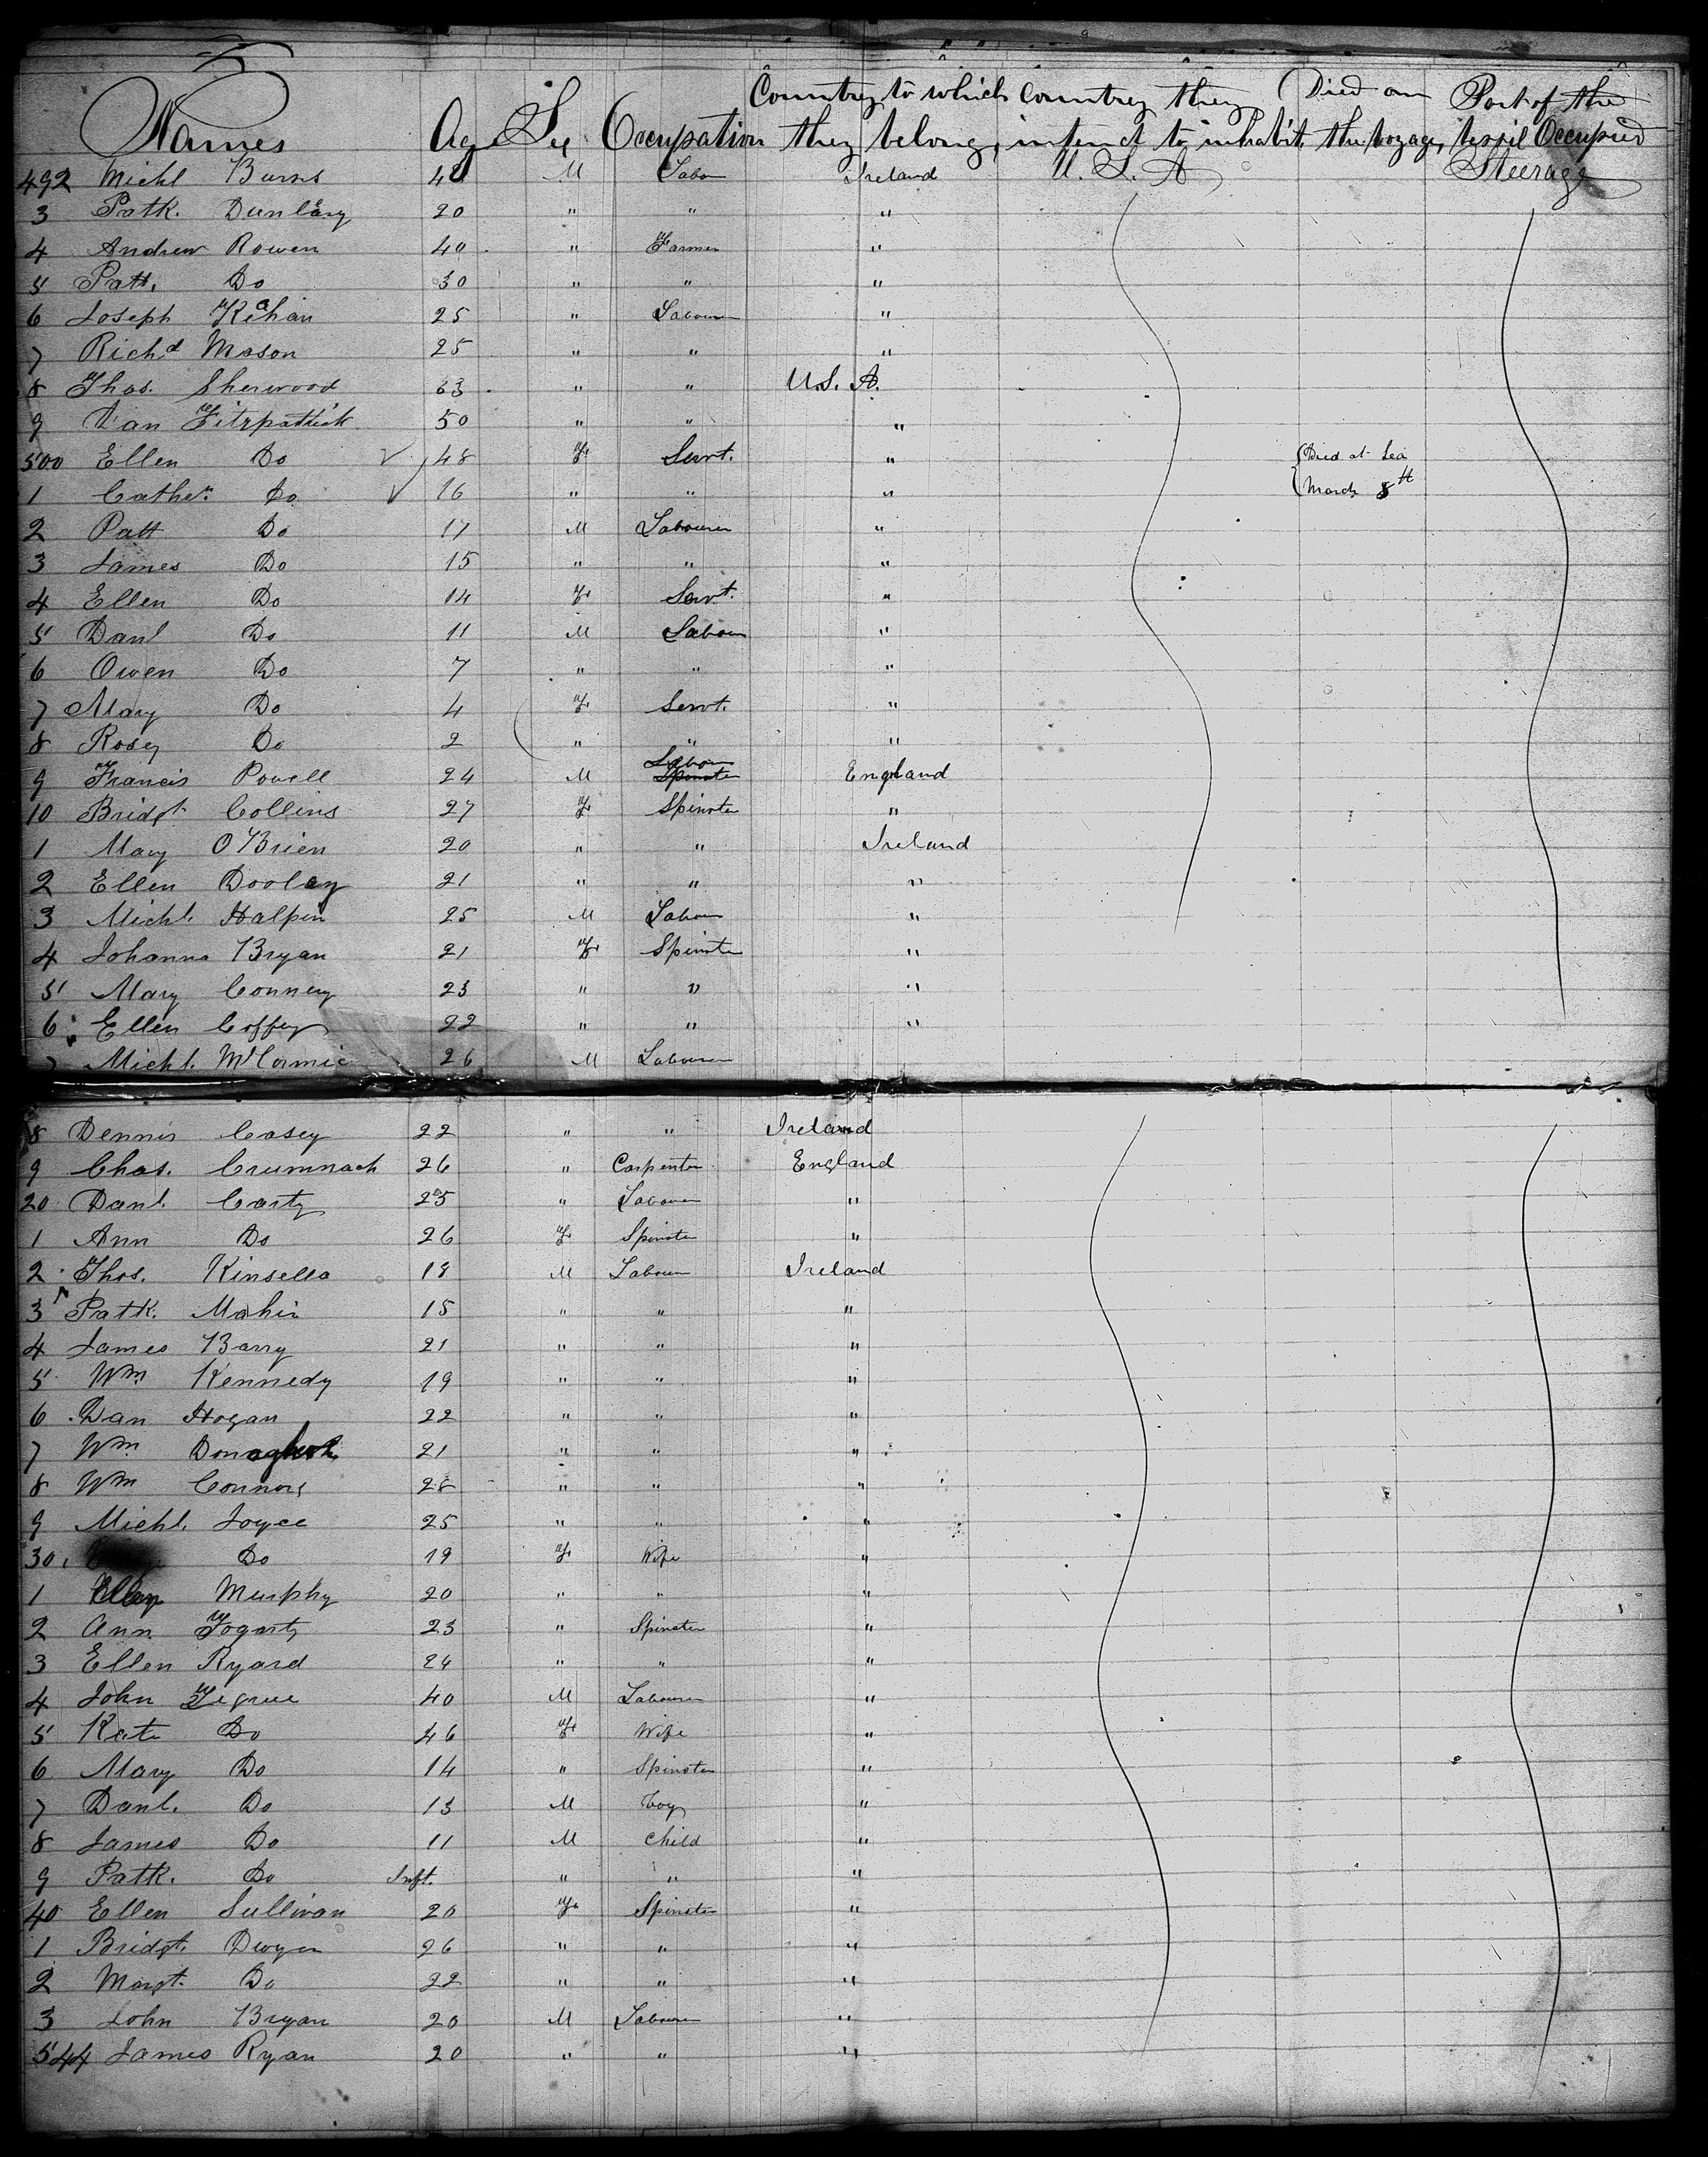 Names Age Sex Occupation Country to which they belong, Country they intend to inhabit, Died on the Voyage, Part of the vessel Occupied
492 Michl Burns 48 M Labor Ireland U. S. A Steerage
3 Patk. Dunlavy 20 " " "
4 Andrew Rowen 40 " Farmer "
5 Patt. Do 30 " " "
6 Joseph Kehan 25 " Labourer "
7 Richd Mason 25 " " "
8 Thos. Sherwood 63 " " U.S. A.
9 Dan Fitzpatrick 50 " " "
500 Ellen Do 48 F Servt. " Died at Sea
1 Cathe. Do 16 " " " March 8th
2 Patt Do 17 M Labourer "
3 James Do 15 " " "
4 Ellen Do 14 F Servt. "
5 Danl Do 11 M Labour "
6 Owen Do 7 " " "
7 Mary Do 4 F Servt. "
8 Rosey Do 2 " " "
9 Francis Powell 24 M Labour Spinster England
10 Bridgt Collins 27 F Spinster "
1 Mary O'Brien 20 " " Ireland
2 Ellen Dooley 21 " " "
3 Michl. Halpin 25 M Labour "
4 Johanna Bryan 21 F Spinster "
5 Mary Connery 23 " " "
6 Ellen Coffey 22 " " "
7 Michl. McCormic 26 M Labourer
8 Dennis Casey 22 " " Ireland
9 Chas. Crumnack 26 " Carpenter England
20 Danl. Carty 25 " Labourer "
1 Ann Do 26 F Spinster "
2 Thos. Kinsella 18 M Labourer Ireland
3 Patk. Mahir 15 " " "
4 James Barry 21 " " "
5 Wm Kennedy 19 " " "
6 Dan Hogan 22 " " "
7 Wm 21 " " "
8 Wm Connors 28 " " "
9 Michl. Joyce 25 " " "
30 Do 19 F Wife "
1 Ellen Murphy 20 " " "
2 Ann Fogarty 23 " Spinster "
3 Ellen Ryard 24 " " "
4 John Tegrue 40 M Labourer "
5 Kate Do 46 F Wife "
6 Mary Do 14 " Spinster "
7 Danl. Do 13 M boy "
8 James Do 11 M Child "
9 Patk. Do Inft. " " "
40 Ellen Sullivan 20 F Spinster "
1 Bridgt. Dwyer 26 " " "
2 Margt. Do 22 " " "
3 John Bryan 20 M Labourer "
544 James Ryan 20 " " "